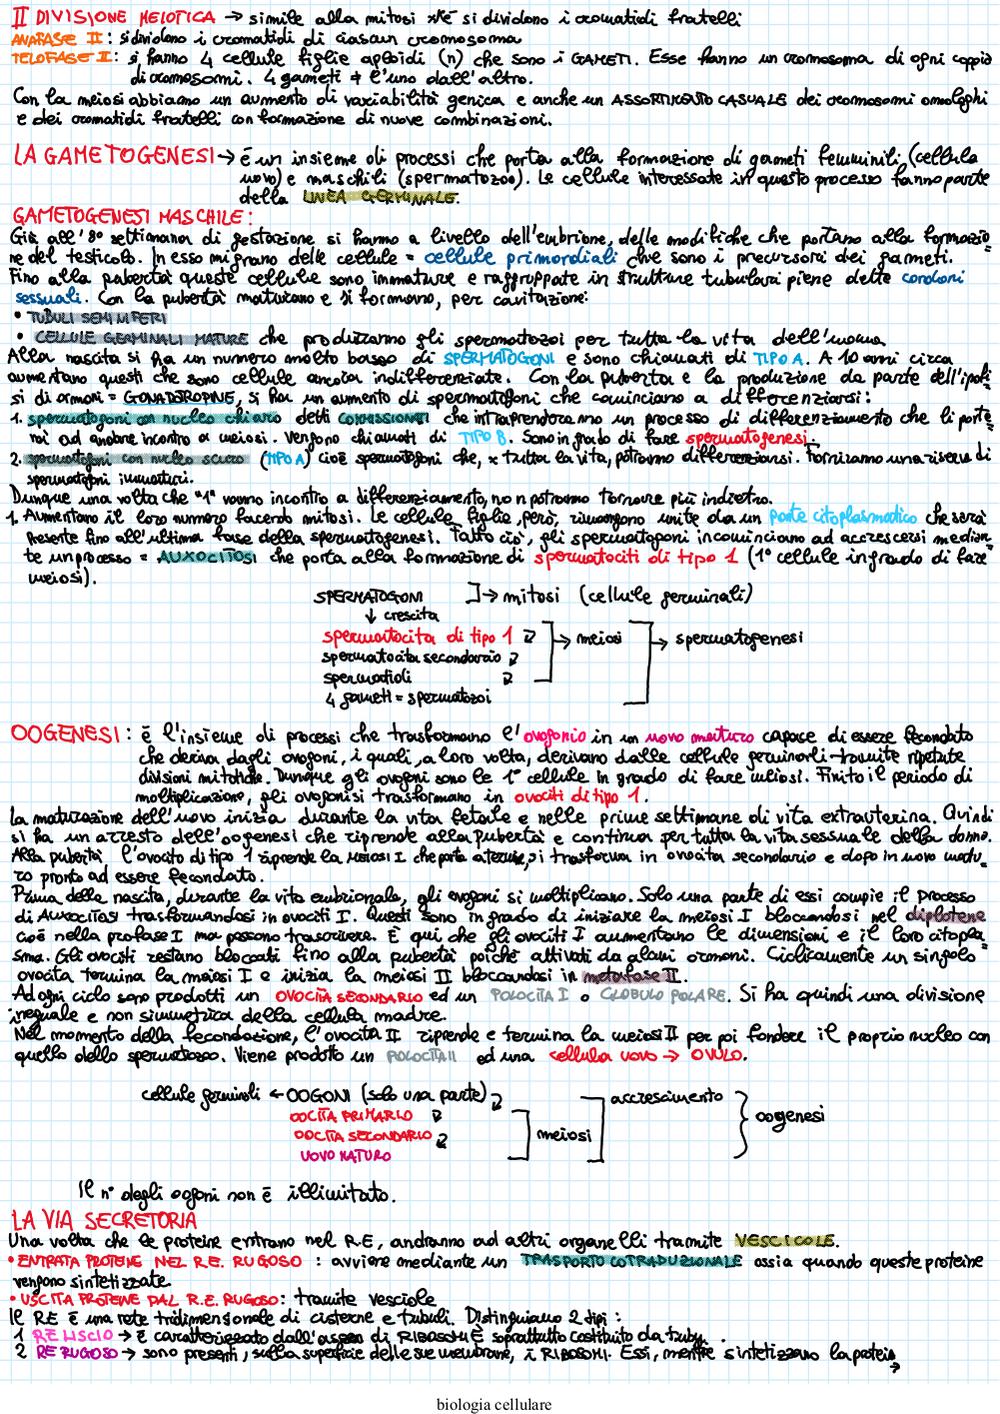 II DIVISIONE MEIOTICA → simile alla mitosi xké si dividono i cromatidi fratelli
ANAFASE II: si dividono i cromatidi di ciascun cromosoma
TELOFASE II: si hanno 4 cellule figlie aploidi (n) che sono i GAMETI. Esse hanno un cromosoma di ogni coppia
di cromosomi. 4 gameti ≠ l'uno dall'altro.
Con la meiosi abbiamo un aumento di variabilità genica e anche un ASSORTIMENTO CASUALE dei cromosomi omologhi
e dei cromatidi fratelli con formazione di nuove combinazioni.
LA GAMETOGENESI → è un insieme di processi che porta alla formazione di gameti femminili (cellula
uovo) e maschili (spermatozoo). Le cellule interessate in questo processo fanno parte
della LINEA GERMINALE.
GAMETOGENESI MASCHILE:
Già all'8° settimana di gestazione si hanno a livello dell'embrione, delle modifiche che portano alla formazio=
ne del testicolo. In esso migrano delle cellule = cellule primordiali che sono i precursori dei gameti.
Fino alla pubertà queste cellule sono immature e raggruppate in strutture tubulari piene dette cordoni
sessuali. Con la pubertà maturano e si formano, per cavitazione:
• TUBULI SEMINIFERI
• CELLULE GERMINALI MATURE che produrranno gli spermatozoi per tutta la vita dell'uomo
Alla nascita si ha un numero molto basso di SPERMATOGONI e sono chiamati di TIPO A. A 10 anni circa
aumentano questi che sono cellule ancora indifferenziate. Con la pubertà e la produzione da parte dell'ipofi
si di ormoni = GONADOTROPINE, si ha un aumento di spermatogoni che cominciano a differenziarsi:
1. spermatogoni con nucleo chiaro detti COMMISSIONATI che intraprenderanno un processo di differenziamento che li porte
rà ad andare incontro a meiosi. Vengono chiamati di TIPO B. Sono in grado di fare spermatogenesi.
2. spermatogoni con nucleo scuro (TIPO A) cioè spermatogoni che, x tutta la vita, potranno differenziarsi. Forniranno una riserva di
spermatogoni immaturi.
Dunque una volta che "1" vanno incontro a differenziamento, non potranno tornare più indietro.
1. Aumentano il loro numero facendo mitosi. Le cellule figlie, però, rimangono unite da un ponte citoplasmatico che sarà
presente fino all'ultima fase della spermatogenesi. Fatto ciò, gli spermatogoni incominciano ad accrescersi median
te un processo = AUXOCITOSI che porta alla formazione di spermatociti di tipo 1 (1° cellule in grado di fare
meiosi).
SPERMATOGONI ]→ mitosi (cellule germinali)
↓ crescita
spermatocita di tipo 1 → meiosi → spermatogenesi
spermatocita secondario
spermatidi
4 gameti = spermatozoi
OOGENESI: è l'insieme di processi che trasformano l'ovogonio in un uovo maturo capace di essere fecondato
che deriva dagli ovogoni, i quali, a loro volta, derivano dalle cellule germinali tramite ripetute
divisioni mitotiche. Dunque gli ovogoni sono le 1° cellule in grado di fare meiosi. Finito il periodo di
moltiplicazione, gli ovogoni si trasformano in ovociti di tipo 1.
La maturazione dell'uovo inizia durante la vita fetale e nelle prime settimane di vita extrauterina. Quindi
si ha un arresto dell'oogenesi che riprende alla pubertà e continua per tutta la vita sessuale della donna.
Alla pubertà l'ovocito di tipo 1 riprende la MEIOSI I che porta a termine, si trasforma in ovocita secondario e dopo in uovo matu=
ro pronto ad essere fecondato.
Prima della nascita, durante la vita embrionale, gli ovogoni si moltiplicano. Solo una parte di essi compie il processo
di AUXOCITOSI trasformandosi in ovociti I. Questi sono in grado di iniziare la meiosi I bloccandosi nel diplotene
cioè nella profase I ma possono trascrivere. È qui che gli ovociti I aumentano le dimensioni e il loro citopla
sma. Gli ovociti restano bloccati fino alla pubertà poiché attivati da alcuni ormoni. Ciclicamente un singolo
ovocita termina la meiosi I e inizia la meiosi II bloccandosi in metafase II.
Ad ogni ciclo sono prodotti un OVOCITA SECONDARIO ed un POLOCITA I o GLOBULO POLARE. Si ha quindi una divisione
ineguale e non simmetrica della cellula madre.
Nel momento della fecondazione, l'ovocita II riprende e termina la meiosi II per poi fondere il proprio nucleo con
quello dello spermatozoo. Viene prodotto un POLOCITA II ed una cellula uovo → OVULO.
cellule germinali ← OOGONI (solo una parte) accrescimento
OOCITA PRIMARIO oogenesi
OOCITA SECONDARIO meiosi
UOVO MATURO
Il n° degli oogoni non è illimitato.
LA VIA SECRETORIA
Una volta che le proteine entrano nel R.E, andranno ad altri organelli tramite VESCICOLE.
• ENTRATA PROTEINE NEL R.E. RUGOSO: avviene mediante un TRASPORTO COTRADUZIONALE ossia quando queste proteine
vengono sintetizzate.
• USCITA PROTEINE DAL R.E. RUGOSO: tramite vesciole
Il RE è una rete tridimensionale di cisterne e tubuli. Distinguiamo 2 tipi:
1 RE LISCIO → è caratterizzato dall'assenza di RIBOSOMI È soprattutto costituito da tubuli.
2 RE RUGOSO → sono presenti, sulla superficie delle sue membrane, i RIBOSOMI. Essi, mentre sintetizzano la proteina →
biologia cellulare